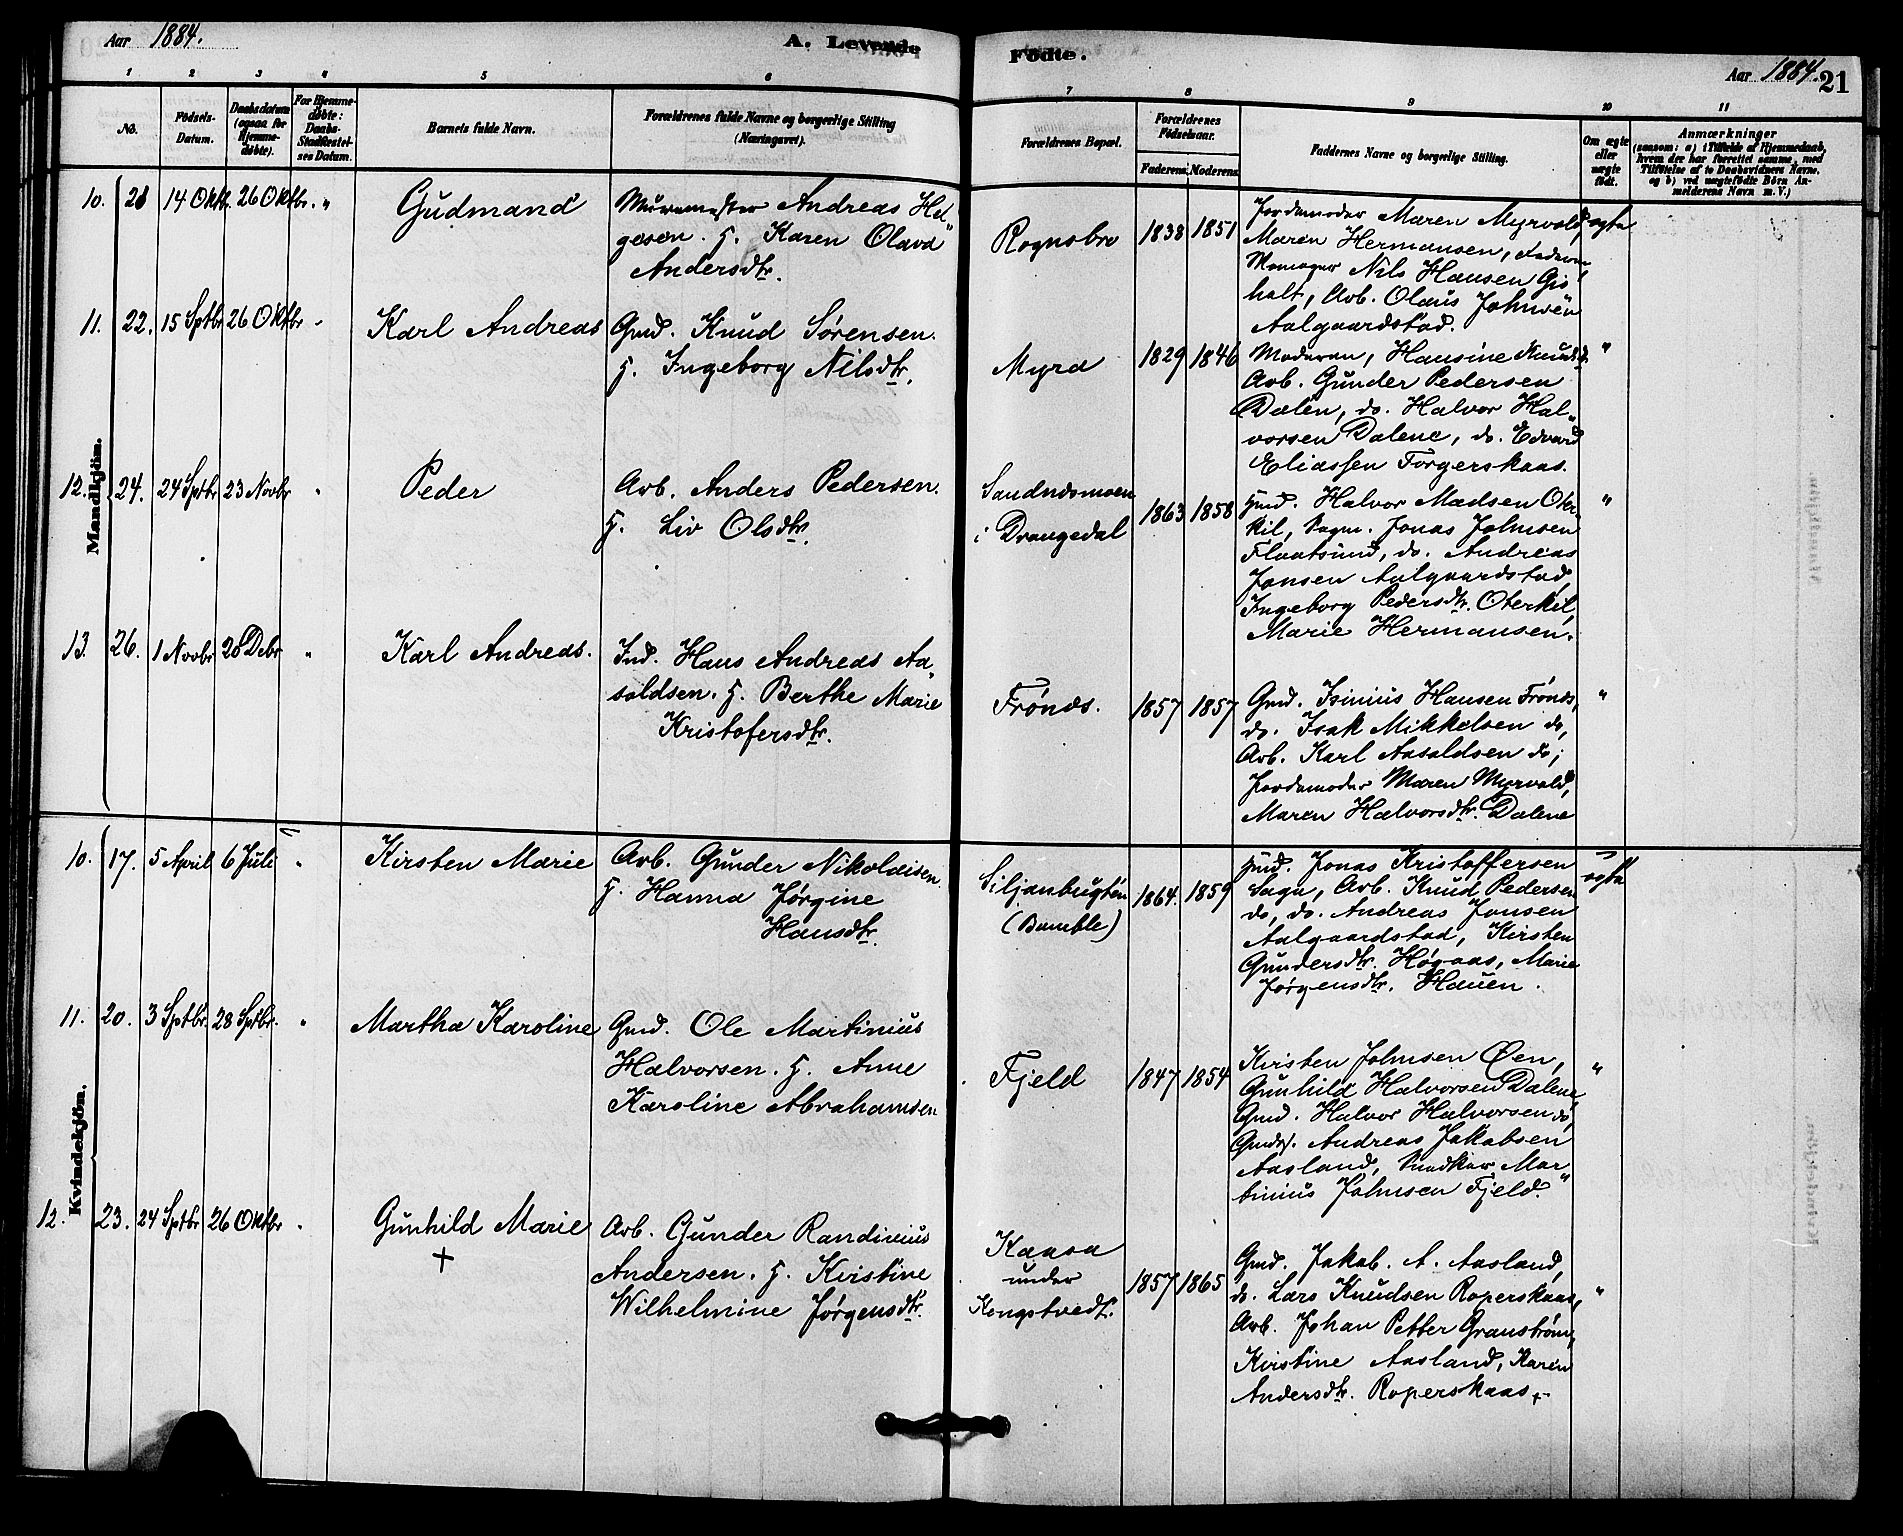 Aar 1884. A. Levende Födte. Aar 1884. 21
1 2 3 4 5 6 7 8 9 10 11
No.
Födsels-Datum.
Daabsdatum (ogsaa for Hjemme-döbte).
For Hjemme-döbte: Daabs-Stadfæstel-ses Datum.
Barnets fulde Navn.
Forældrenes fulde Navne og borgerlige Stilling (Næringsvei).
Forældrenes Bopæl.
Forældrenes Födselsaar.
Faderens Moderens
Faddernes Navne og borgerlige Stilling.
Om ægte eller uægte födt.
Anmærkninger
(saasom: a) i Tilfælde af Hjemmedaab,
hvem der har forrettet samme, med
Tilföielse af to Daabsvidners Navne.
og b) ved uægtefödte Börn An-
melderens Navn m. V.)
Mandkjön.
10. 21 14 Oktb. 26 Oktbr. "
Gudmand
Muremester Andreas Hel
gesen. H. Karen Olava
Andersdtr.
Rognsbro
1838 1851
Jordemoder Maren Myrvold,
Maren Hermansen, Faderen
Nils Hansen Gis
holt, Arb. Olaus Johnsen
Aalgaardstad.
ægte
11. 22. 15 Sptbr 26 Oktbr "
Karl Andreas
Gmd. Knud Sørensen.
H. Ingeborg Nilsdtr.
Myra
1829 1846
Moderen, Hansine Knudsd.
Arb. Gunder Pedersen
Dalen, do. Halvor Hal-
vorsen Dalene, do. Edvard
Eliassen Torgerskaas.
"
12. 24. 24 Sptbr 23 Novbr "
Peder
Arb. Anders Pedersen.
H. Liv Olsdtr.
Sandnesmoen
i Drangedal
1863 1858
Hmd. Halvor Madsen Oter-
kil, Sagm. Jonas Johnsen
Flaatsund, do. Andreas
Jansen Aalgaardstad,
Ingeborg Pedersdtr. Oterkil,
Marie Hermansen.
"
13. 26. 1 Novbr 28 Debr "
Karl Andreas.
Ind. Hans Andreas Aa
saldsen. H. Berthe Marie
Kristofersdtr.
Frönes.
1857 1857
Gmd. Isinius Hansen Frönes,
do. Isak Mikkelsen do,
Arb. Karl Aasaldsen do;
Jordemoder Maren Myrvold,
Maren Halvorsdtr. Dalene
"
Kvindekjön.
10. 17. 5 April 6 Juli "
Kirsten Marie
Arb. Gunder Nikolaisen.
H. Hanna Jørgine
Hansdtr.
Siljanbugten
(Bamble)
1864. 1859
Hmd. Jonas Kristoffersen
Saga, Arb. Knud Pedersen
do, do. Andreas Jansen
Aalgaardstad, Kirsten
Gundersdtr. Høgaas, Marie
Jørgensdtr. Hauen.
ægte
11. 20. 3 Sptbr. 28 Sptbr. "
Martha Karoline
Gmd. Ole Martinius
Halvorsen. H. Anne
Karoline Abrahamsen
Fjeld
1847 1854
Kirsten Johnsen Øen,
Gunhild Halvorsen Dalene,
Gmd. Halvor Halvorsen do,
Gmds. Andreas Jakobsen
Aasland, Snedker Mar
tinius Johnsen Fjeld.
"
12. 23. 24 Sptbr 26 Oktbr "
Gunhild Marie
+
Arb. Gunder Randinius
Andersen. H. Kristine
Wilhelmine Jørgensdtr.
Kaasa
under
Kongstvedt.
1857 1865
Gmd. Jakob. A. Aasland,
do. Lars Knudsen Roperskaas,
Arb. Johan Petter Granström,
Kirstine Aasland, Karen
Andersdtr. Roperskaas.
"